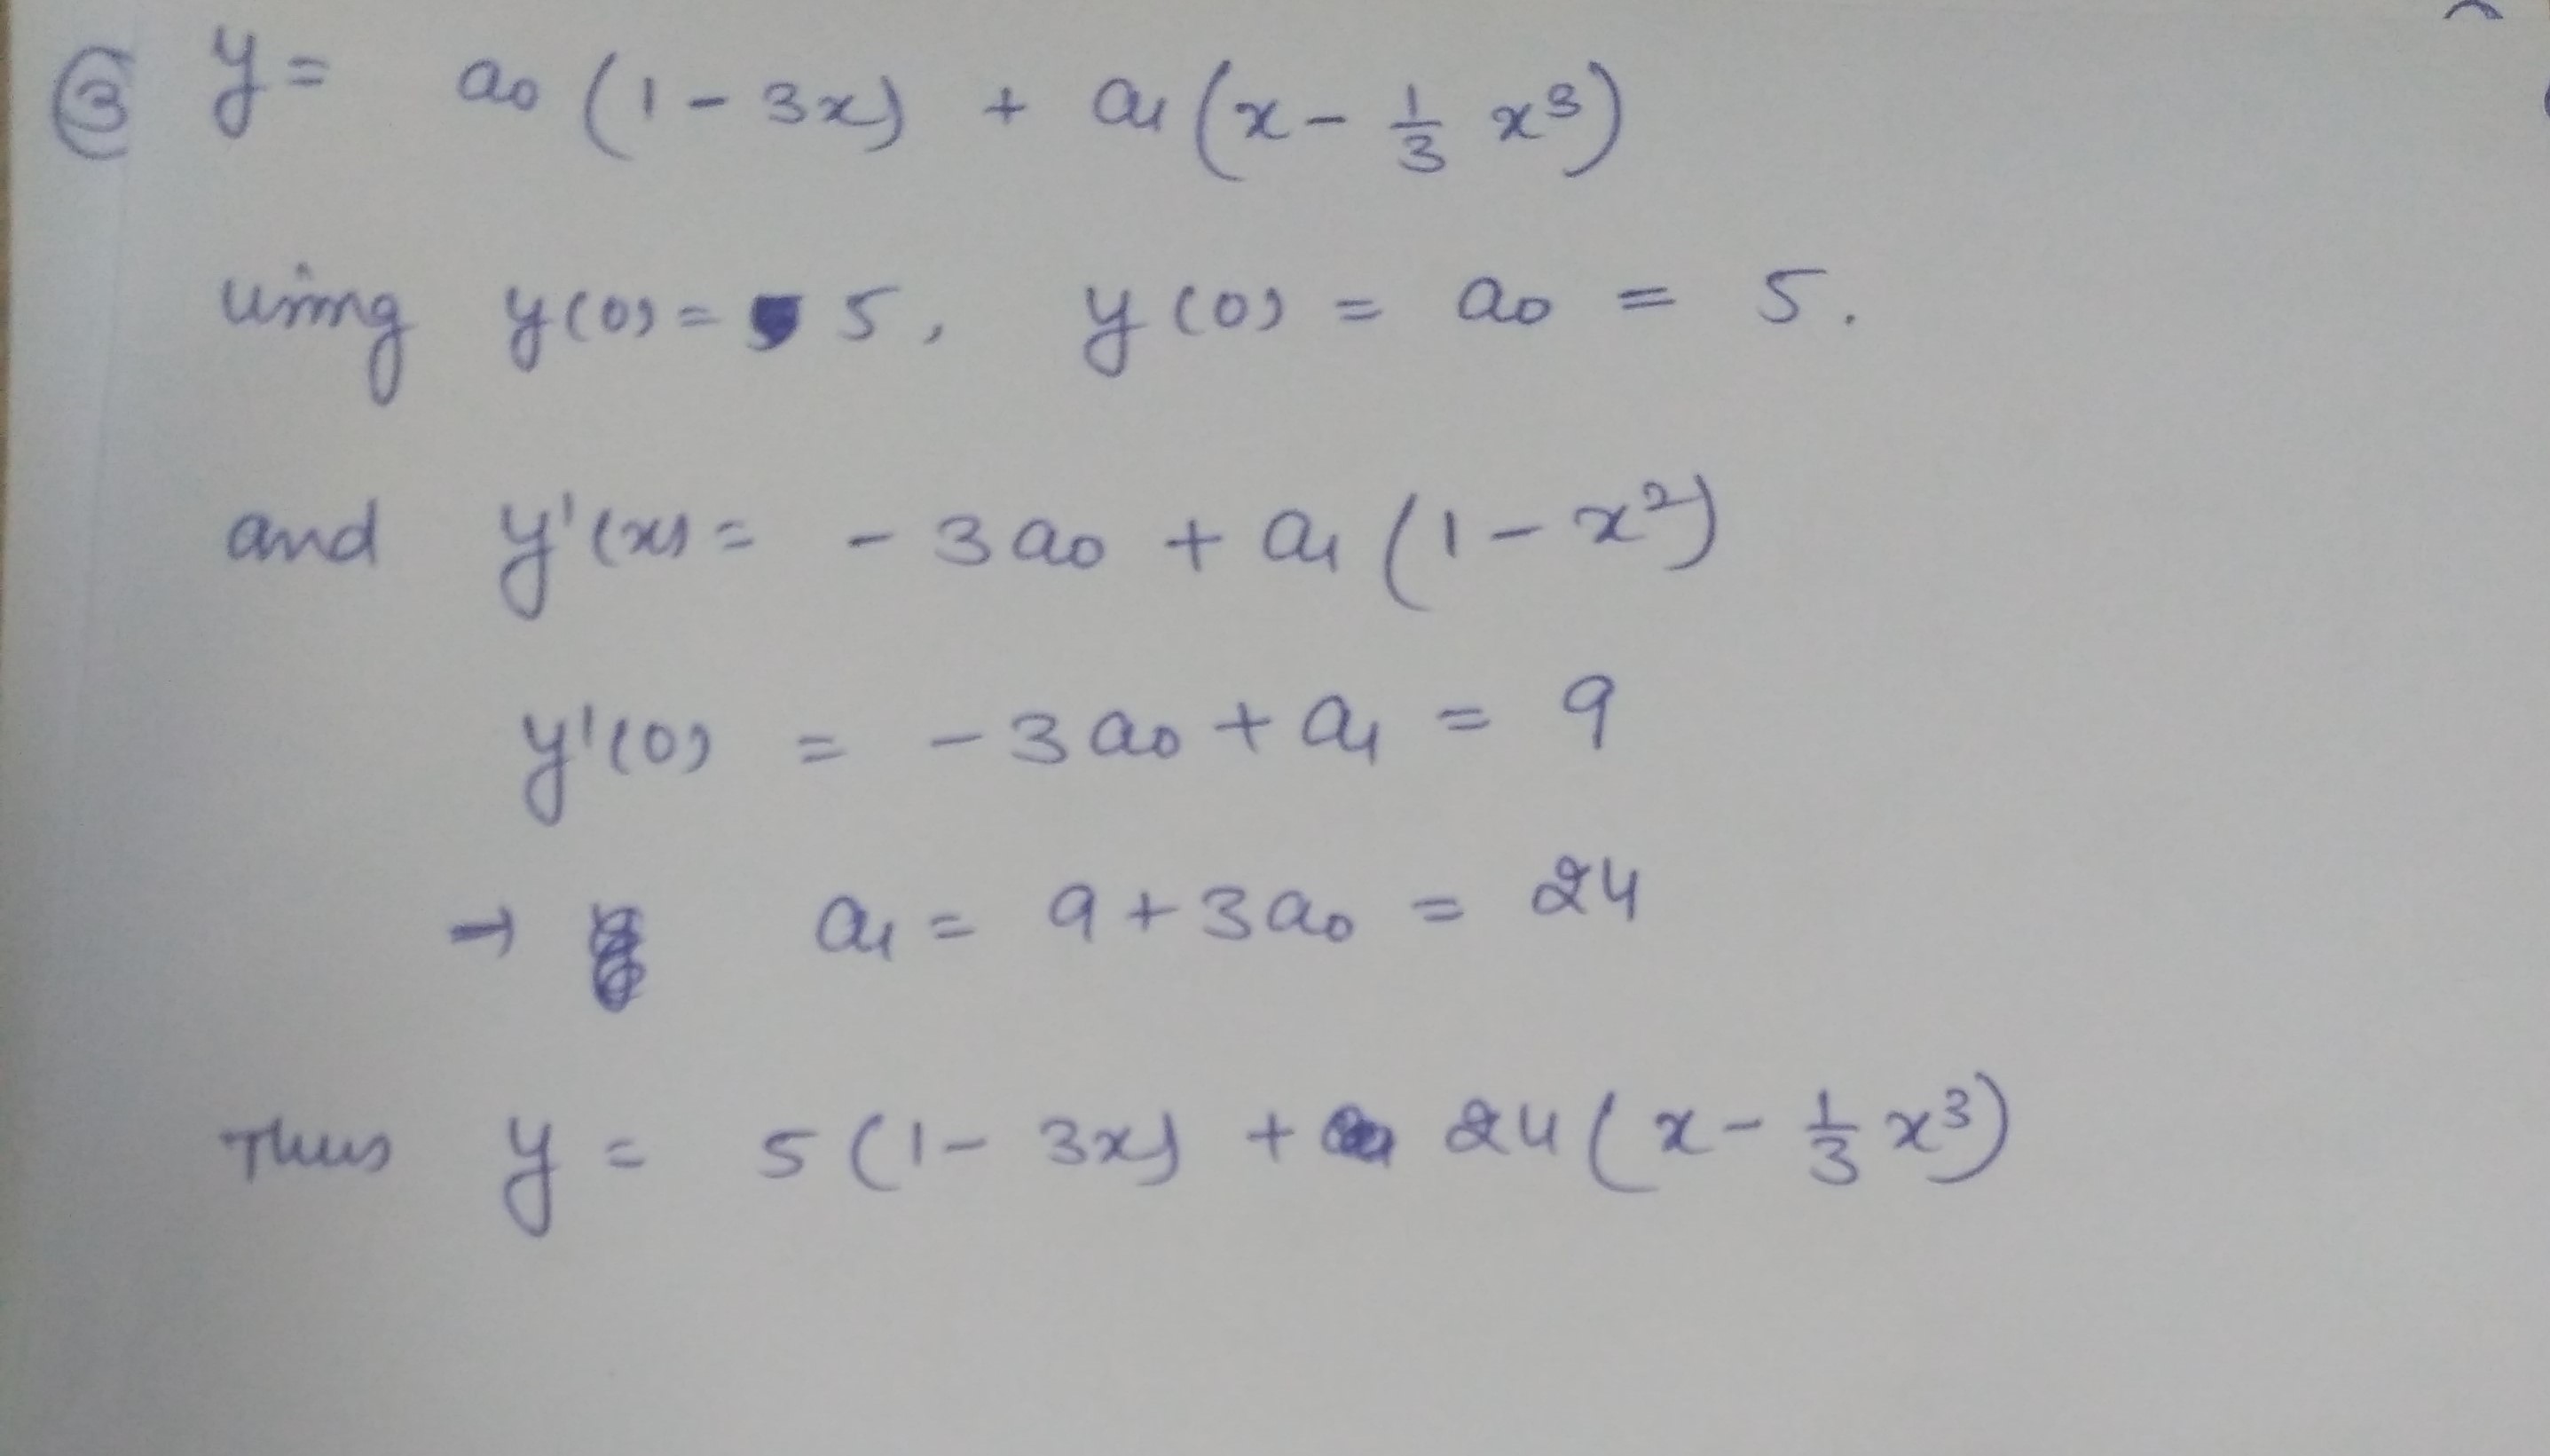 ③ y = a₀ (1 - 3x) + a₁ (x - 1/3 x³)
using y(0) = 5, y(0) = a₀ = 5.
and y'(x) = - 3a₀ + a₁ (1 - x²)
y'(0) = - 3a₀ + a₁ = 9
→ a₁ = 9 + 3a₀ = 24
Thus y = 5 (1 - 3x) + 24 (x - 1/3 x³)